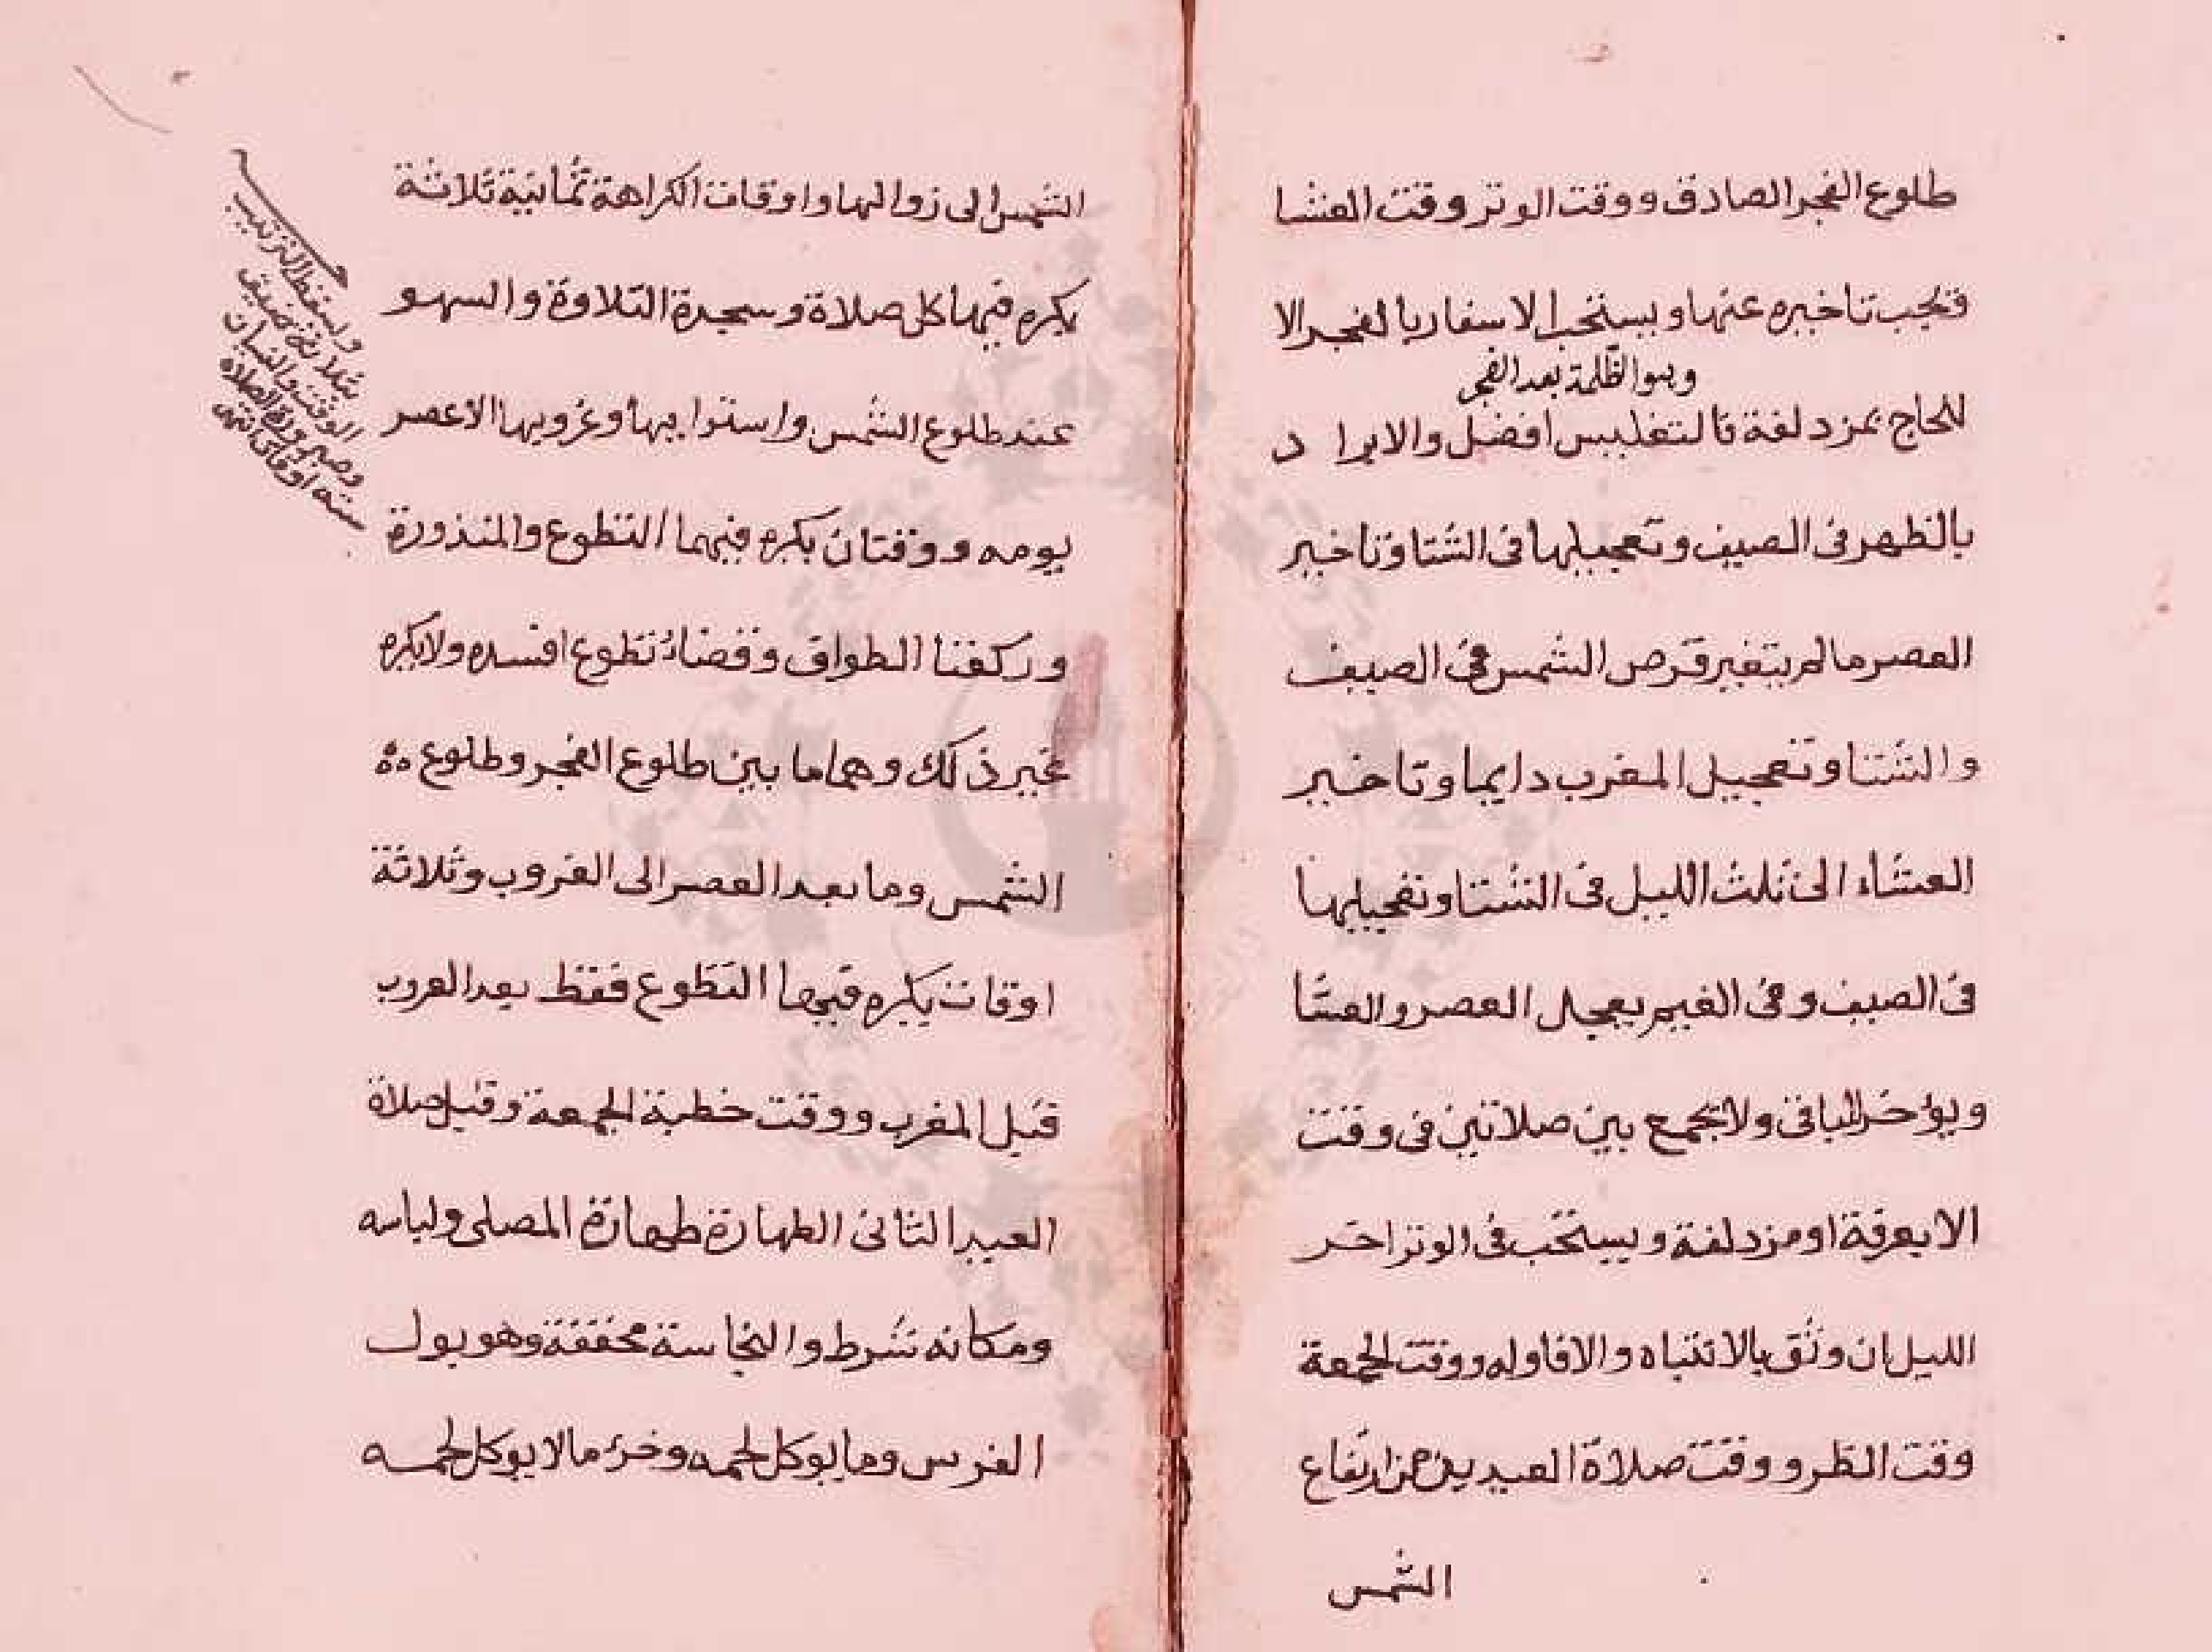 طلوع الفجر الصادق ووقت الوتر وقت العشا
فيجب تاخيره عنها ويستحب الاسفار بالفجر الا
وهو الظلمة بعد الفجر
للحاج بمزدلفة فالتغليس افضل والابراد
بالظهر في الصيف وتعجيلها في الشتا وتاخير
العصر ما لم يتغير قرص الشمس في الصيف
والشتا وتعجيل المغرب دايما وتاخير
العشاء الى ثلث الليل في الشتا وتعجيلها
في الصيف وفي الغيم يعجل العصر والعشا
ويؤخر الباقي ولا يجمع بين صلاتين في وقت
الا بعرفة او مزدلفة ويستحب في الوتر اخر
الليل ان وثق بالانتباه والا فاوله ووقت الجمعة
وقت الظهر ووقت صلاة العيدين من ارتفاع
الشمس
الشمس الى زوالها واوقات الكراهة ثمانية ثلاثة
يكره فيها كل صلاة وسجدة التلاوة والسهو
عند طلوع الشمس واستوايها وغروبها الا عصر
يومه ووقتان يكره فيهما التطوع والمنذورة
وركعتا الطواف وقضاء تطوع افسده ولا يكره
غير ذلك وهما ما بين طلوع الفجر وطلوع
الشمس وما بعد العصر الى الغروب وثلاثة
اوقات يكره فيها التطوع فقط بعد الغروب
قبل المغرب ووقت خطبة الجمعة وقبل صلاة
العيد الثاني الطهارة طهارة المصلى ولباسه
ومكانه شرط والنجاسة مخففة وهو بول
الفرس وما يوكل لحمه وخرء ما لا يوكل لحمه
ويسقط الترتيب
بثلاثة ضيق
الوقت والنسيان
وصيرورة الصلاة
ستة اوقات انتهى